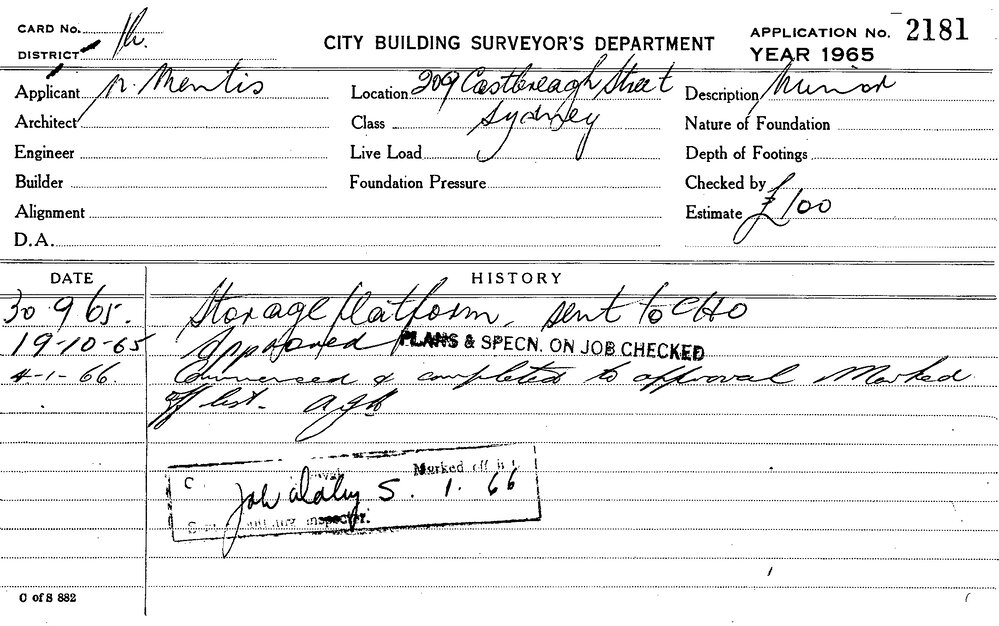 CARD No.
DISTRICT
CITY BUILDING SURVEYOR'S DEPARTMENT
APPLICATION No. 2181
YEAR 1965
Applicant N. Mentis
Location 209 Castlereagh Street
Sydney
Description Minor
Architect
Class
Nature of Foundation
Engineer
Live Load
Depth of Footings
Builder
Foundation Pressure
Checked by
Alignment
Estimate £100
D.A.
DATE
HISTORY
30 9 65. Storage platform, sent to CHO
19-10-65 Approved PLANS & SPECN. ON JOB CHECKED
4-1-66. Commenced & completed to approval Marked
off list.
C Marked off
5. 1. 66
inspector.
C of S 882